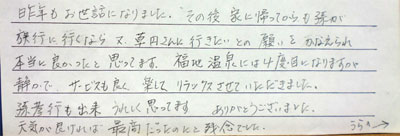 昨年もお世話になりました。その後 家に帰ってからも孫が
旅行に行くなら 又、草円さんに行きたいとの 願いをかなえられ
本当に良かったと思ってます。福地温泉には4度目になりますが
静かで、サービスも良く 楽しく リラックスさせていただきました。
孫孝行も出来 うれしく思ってます ありがとうございました。
天気が良ければ 最高だったのにと残念でした。 うらへ→